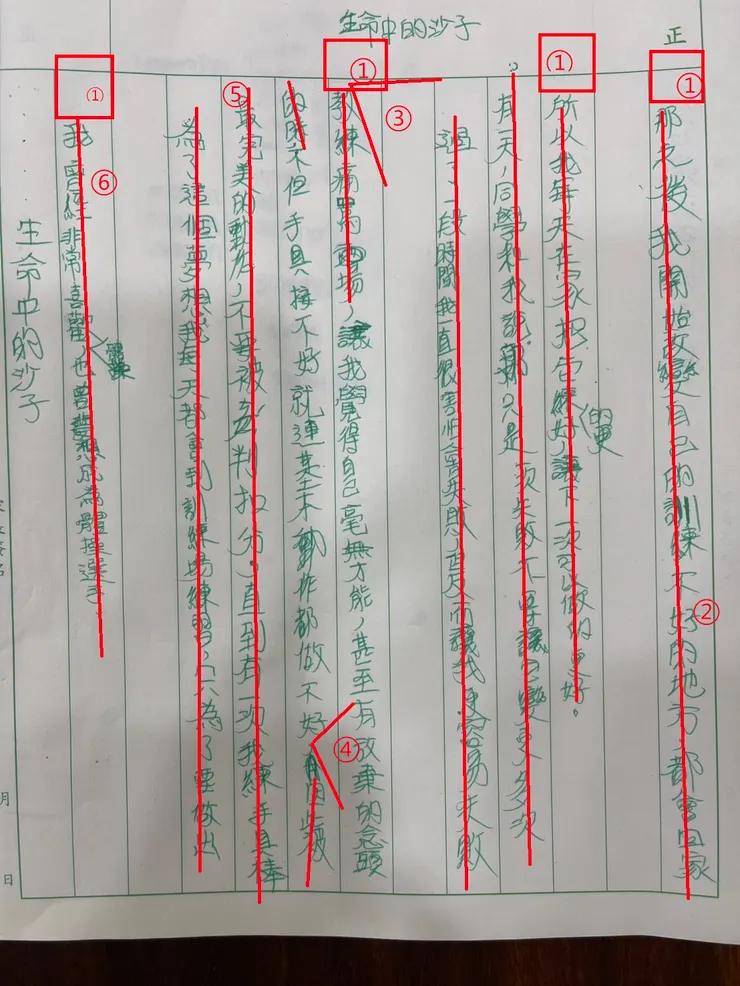 生命中的沙子
正
生命中的沙子
我曾經非常喜歡體操，也曾夢想成為體操選手，
為了這個夢想我每天都會到訓練場練習，只為了要做出
最完美的動作，不要被裁判扣分。直到有一次我練手具棒
的時不但手具接不好就連基本動作都做不好，因此被
教練痛罵一場，讓我覺得自己毫無才能，甚至有放棄的念頭
過一段時間我一直很害怕會失誤，反而讓我更容易失敗
有一天，同學和我說：那只是一次失敗不要讓它變更多次
所以我每天在家把它練的更好，讓下一次可以做的更好。
那之後我開始改變自己的訓練不好的地方，都會回家
①
①
①
①
②
③
④
⑤
⑥
月
日